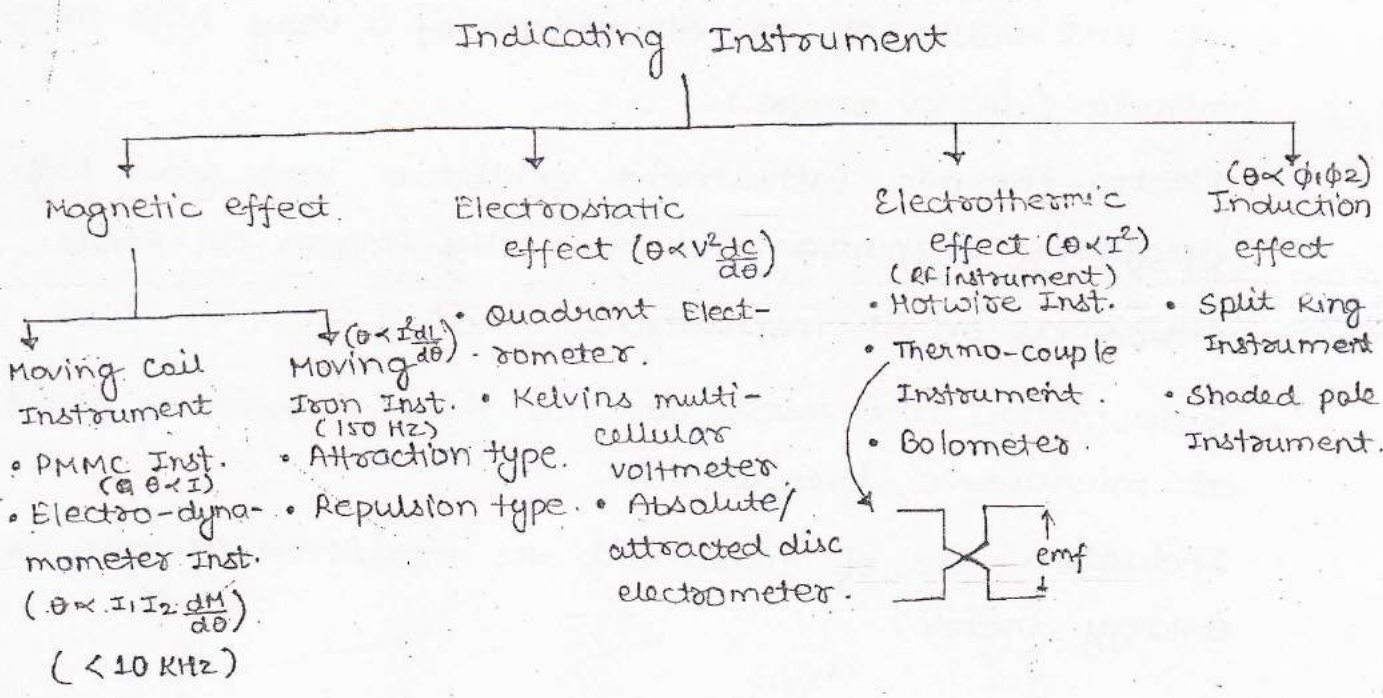 Indicating Instrument
Magnetic effect.
Moving Coil
Instrument
• PMMC Inst.
(θ∝I)
• Electro-dyna-
mometer Inst.
(θ∝ I₁I₂ dM/dθ)
(<10 KHz)
(θ∝I² dL/dθ)
Moving
Iron Inst.
(150 Hz)
• Attraction type.
• Repulsion type.
Electrostatic
effect (θ∝V² dC/dθ)
• Quadrant Elect-
rometer.
• Kelvins multi-
cellular
voltmeter
• Absolute/
attracted disc
electrometer.
Electrothermic
effect (θ∝I²)
(RF instrument)
• Hotwire Inst.
• Thermo-couple
Instrument.
• Bolometer.
emf
(θ∝ϕ₁ϕ2)
Induction
effect
• Split Ring
Instrument
• Shaded pole
Instrument.